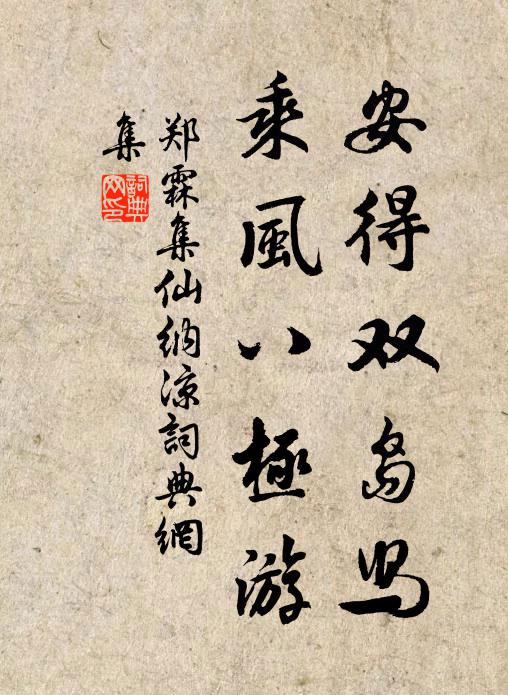 安得双岛舄
乘風八極游
郑霖集仙纳凉詞典網
集
詞典网印